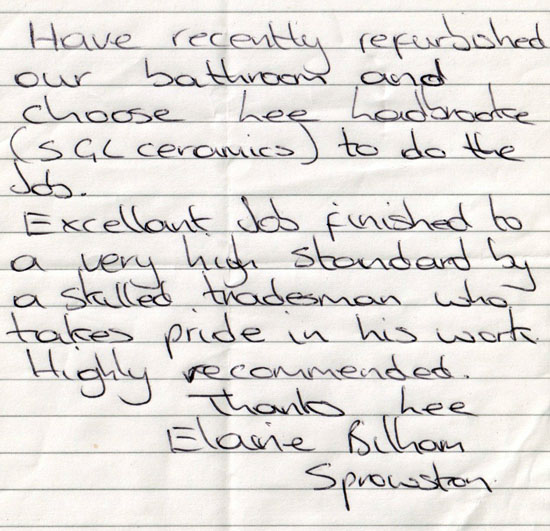 Have recently refurbished
our bathroom and
choose Lee Ladbrooke
(SGL ceramics) to do the
Job.
Excellant Job finished to
a very high standard by
a skilled tradesman who
takes pride in his work.
Highly recommended.
Thanks Lee
Elaine Bilham
Sprowston.